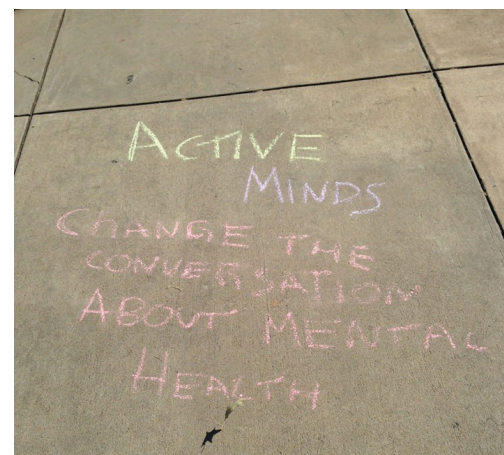 ACTIVE
MINDS
CHANGE THE
CONVERSATION
ABOUT MENTAL
HEALTH